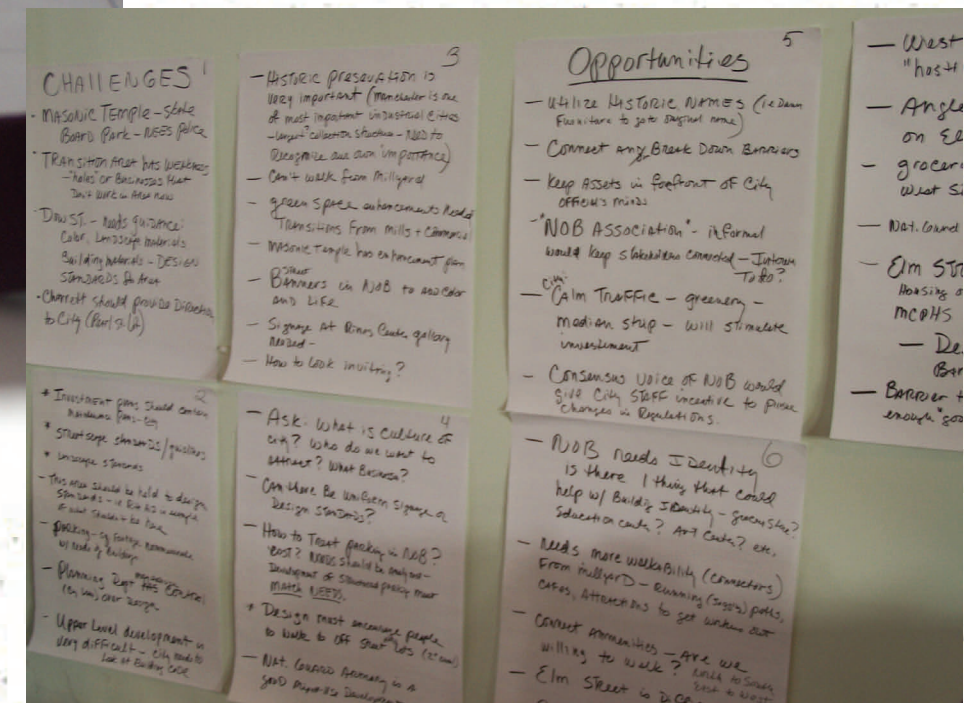 CHALLENGES 1
- MASONIC TEMPLE - State
Board Park - NEEDS Police
- TRANSITION AREA has weakness
- "holes" or Businesses that
Don't work in Area now
- Dow ST. - needs guidance:
Color, Landscape materials
Building materials - DESIGN
STANDARDS for Area
- Charrett should provide Direction
to City
2
* Investment should
* Streetscape standards/guidelines
* Landscape standards
- This area should be held to design
standards
- parking - sq footage
w/ needs of Building
- Planning Dept has CONTROL
over Design
- Upper Level development is
very difficult - City needs to
Look at Building Code
3
- Historic preservation is
very important (manchester is one
of most important industrial cities
- Largest collection structure - NEED to
Recognize our own importance)
- Can't walk from Millyard
- green space enhancements Needed
Transitions From mills + Commercial
- MASONIC Temple has enhancement plan
- Street
Banners in NOB to add color
AND LIFE
- Signage At Rines Center gallery
needed -
- How to look inviting?
4
- Ask: What is culture of
city? Who do we want to
attract? What Business?
- Can there Be uniform signage or
Design STANDARDS?
- How to Treat parking in NOB?
COST? Needs should be analyzed -
Development of structured parking must
Match NEEDS.
* Design must encourage people
to walk to off street lots
- Nat. GUARD Armory is a
good Development
5
Opportunities
- Utilize Historic NAMES (ie Dunn
Furniture to go to original name)
- Connect any Break Down Barriers
- Keep Assets in forefront of City
official's minds
- "NOB ASSOCIATION" - informal
would keep stakeholders connected - Intown
To do?
- City:
CALM TRAFFIC - greenery -
median strip - will stimulate
investement
- Consensus voice of NOB would
give City STAFF incentive to pursue
changes in Regulations.
6
- NOB needs Identity
is there 1 thing that could
help w/ Building Identity - grocery store?
Education center? Art Center? etc.
- Needs more walkability (connectors)
From millyard - Running (jogging) paths,
Cafes, Attractions to get workers out
- Connect Ammenities - Are we
willing to walk? North to South,
East to West
- Elm Street is
- West
"hosti
- Angle
on El
- grocer
West Si
- Nat. Guard
- Elm STR
Housing o
MCPHS
- De
Bar
- Barrier t
enough "goo